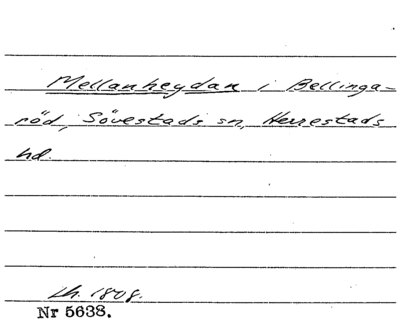 Mellanheydan i Bellinga-
röd, Sövestads sn, Herrestads
hd.
Lh. 1808.
Nr 5638.